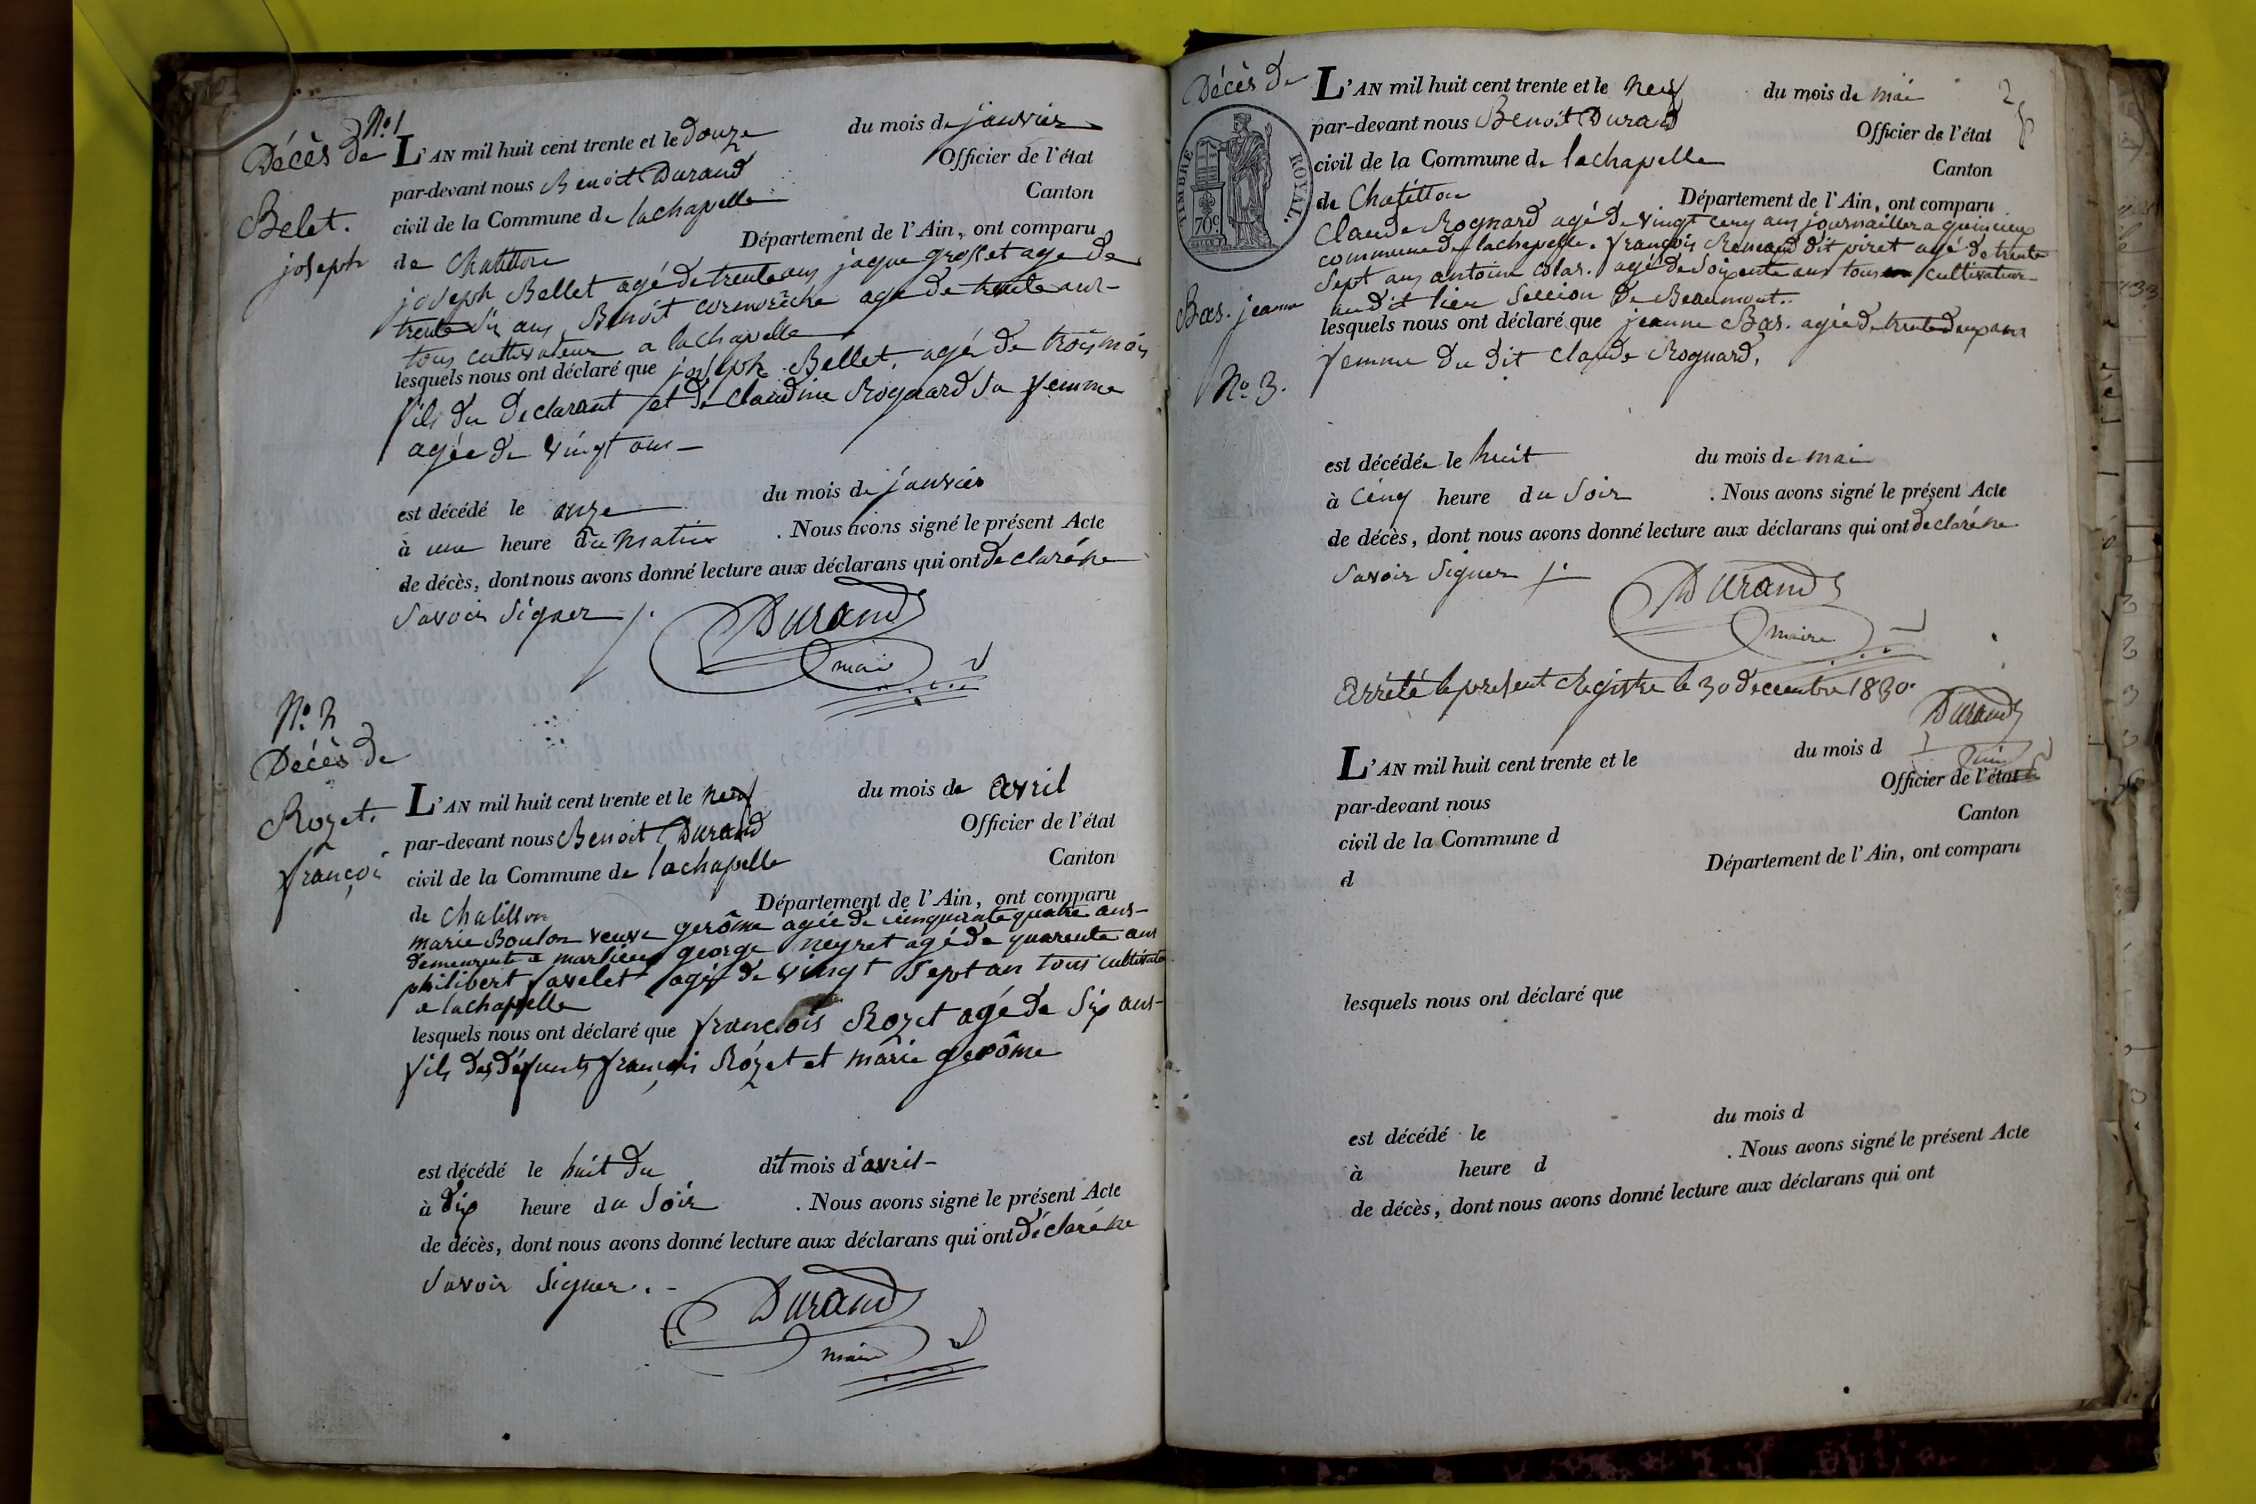 No 1
Décès de
Belet.
joseph
L'AN mil huit cent trente et le douze du mois de janvier
par-devant nous Benoit Durand Officier de l'état
civil de la Commune de lachapelle Canton
de Chatillon Département de l'Ain, ont comparu
joseph Bellet agé de trente ans jaque grosset age de
trente six ans Benoit cormorèche age de trente ans
tous cultivateur a lachapelle
lesquels nous ont déclaré que joseph Bellet, agé de trois mois
fils du declarant et de claudine Rognard sa femme
agée de vingt ans
est décédé le onze du mois de janvier
à une heure du matin . Nous avons signé le présent Acte
de décès, dont nous avons donné lecture aux déclarans qui ont declaré ne
savoir signer
Durand
maire
No 2
Décès de
Rozet.
françoi
L'AN mil huit cent trente et le neuf du mois de avril
par-devant nous Benoit Durand Officier de l'état
civil de la Commune de lachapelle Canton
de chatillon Département de l'Ain, ont comparu
marie Boulon veuve gerôme agée de cinquante quatre ans
demeurente a marlieu george neyret agé de quarente ans
philibert favelet agé de vingt sept an tous cultivateur
a lachapelle
lesquels nous ont déclaré que francois Rozet agé de six ans
fils des défunts françois Rozet et marie gerôme
est décédé le huit du dit mois d'avril
à dix heure du soir . Nous avons signé le présent Acte
de décès, dont nous avons donné lecture aux déclarans qui ont déclaré ne
savoir signer.
Durand
maire
Décès de
TIMBRE ROYAL.
70c
Bas. jeanne
No 3.
L'AN mil huit cent trente et le neuf du mois de mai
par-devant nous Benoit Durand Officier de l'état
civil de la Commune de lachapelle Canton
de Chatillon Département de l'Ain, ont comparu
Claude Rognard agé de vingt cinq ans journaillier a
commune de lachapelle. françois Renaud dit piret agé de trente
sept ans antoine colas. agé de soixente ans tous cultivateur
au dit lieu section de Beaumont.
lesquels nous ont déclaré que jeanne Bas. agée de trente deux ans
femme du dit claude Rognard.
est décédée le huit du mois de mai
à cinq heure du soir . Nous avons signé le présent Acte
de décès, dont nous avons donné lecture aux déclarans qui ont declaré ne
savoir signer
Durand
maire
Arrêté le present Registre le 30 decembre 1830.
Durand
L'AN mil huit cent trente et le du mois d
par-devant nous Officier de l'état
civil de la Commune d Canton
d Département de l'Ain, ont comparu
lesquels nous ont déclaré que
est décédé le du mois d
à heure d . Nous avons signé le présent Acte
de décès, dont nous avons donné lecture aux déclarans qui ont